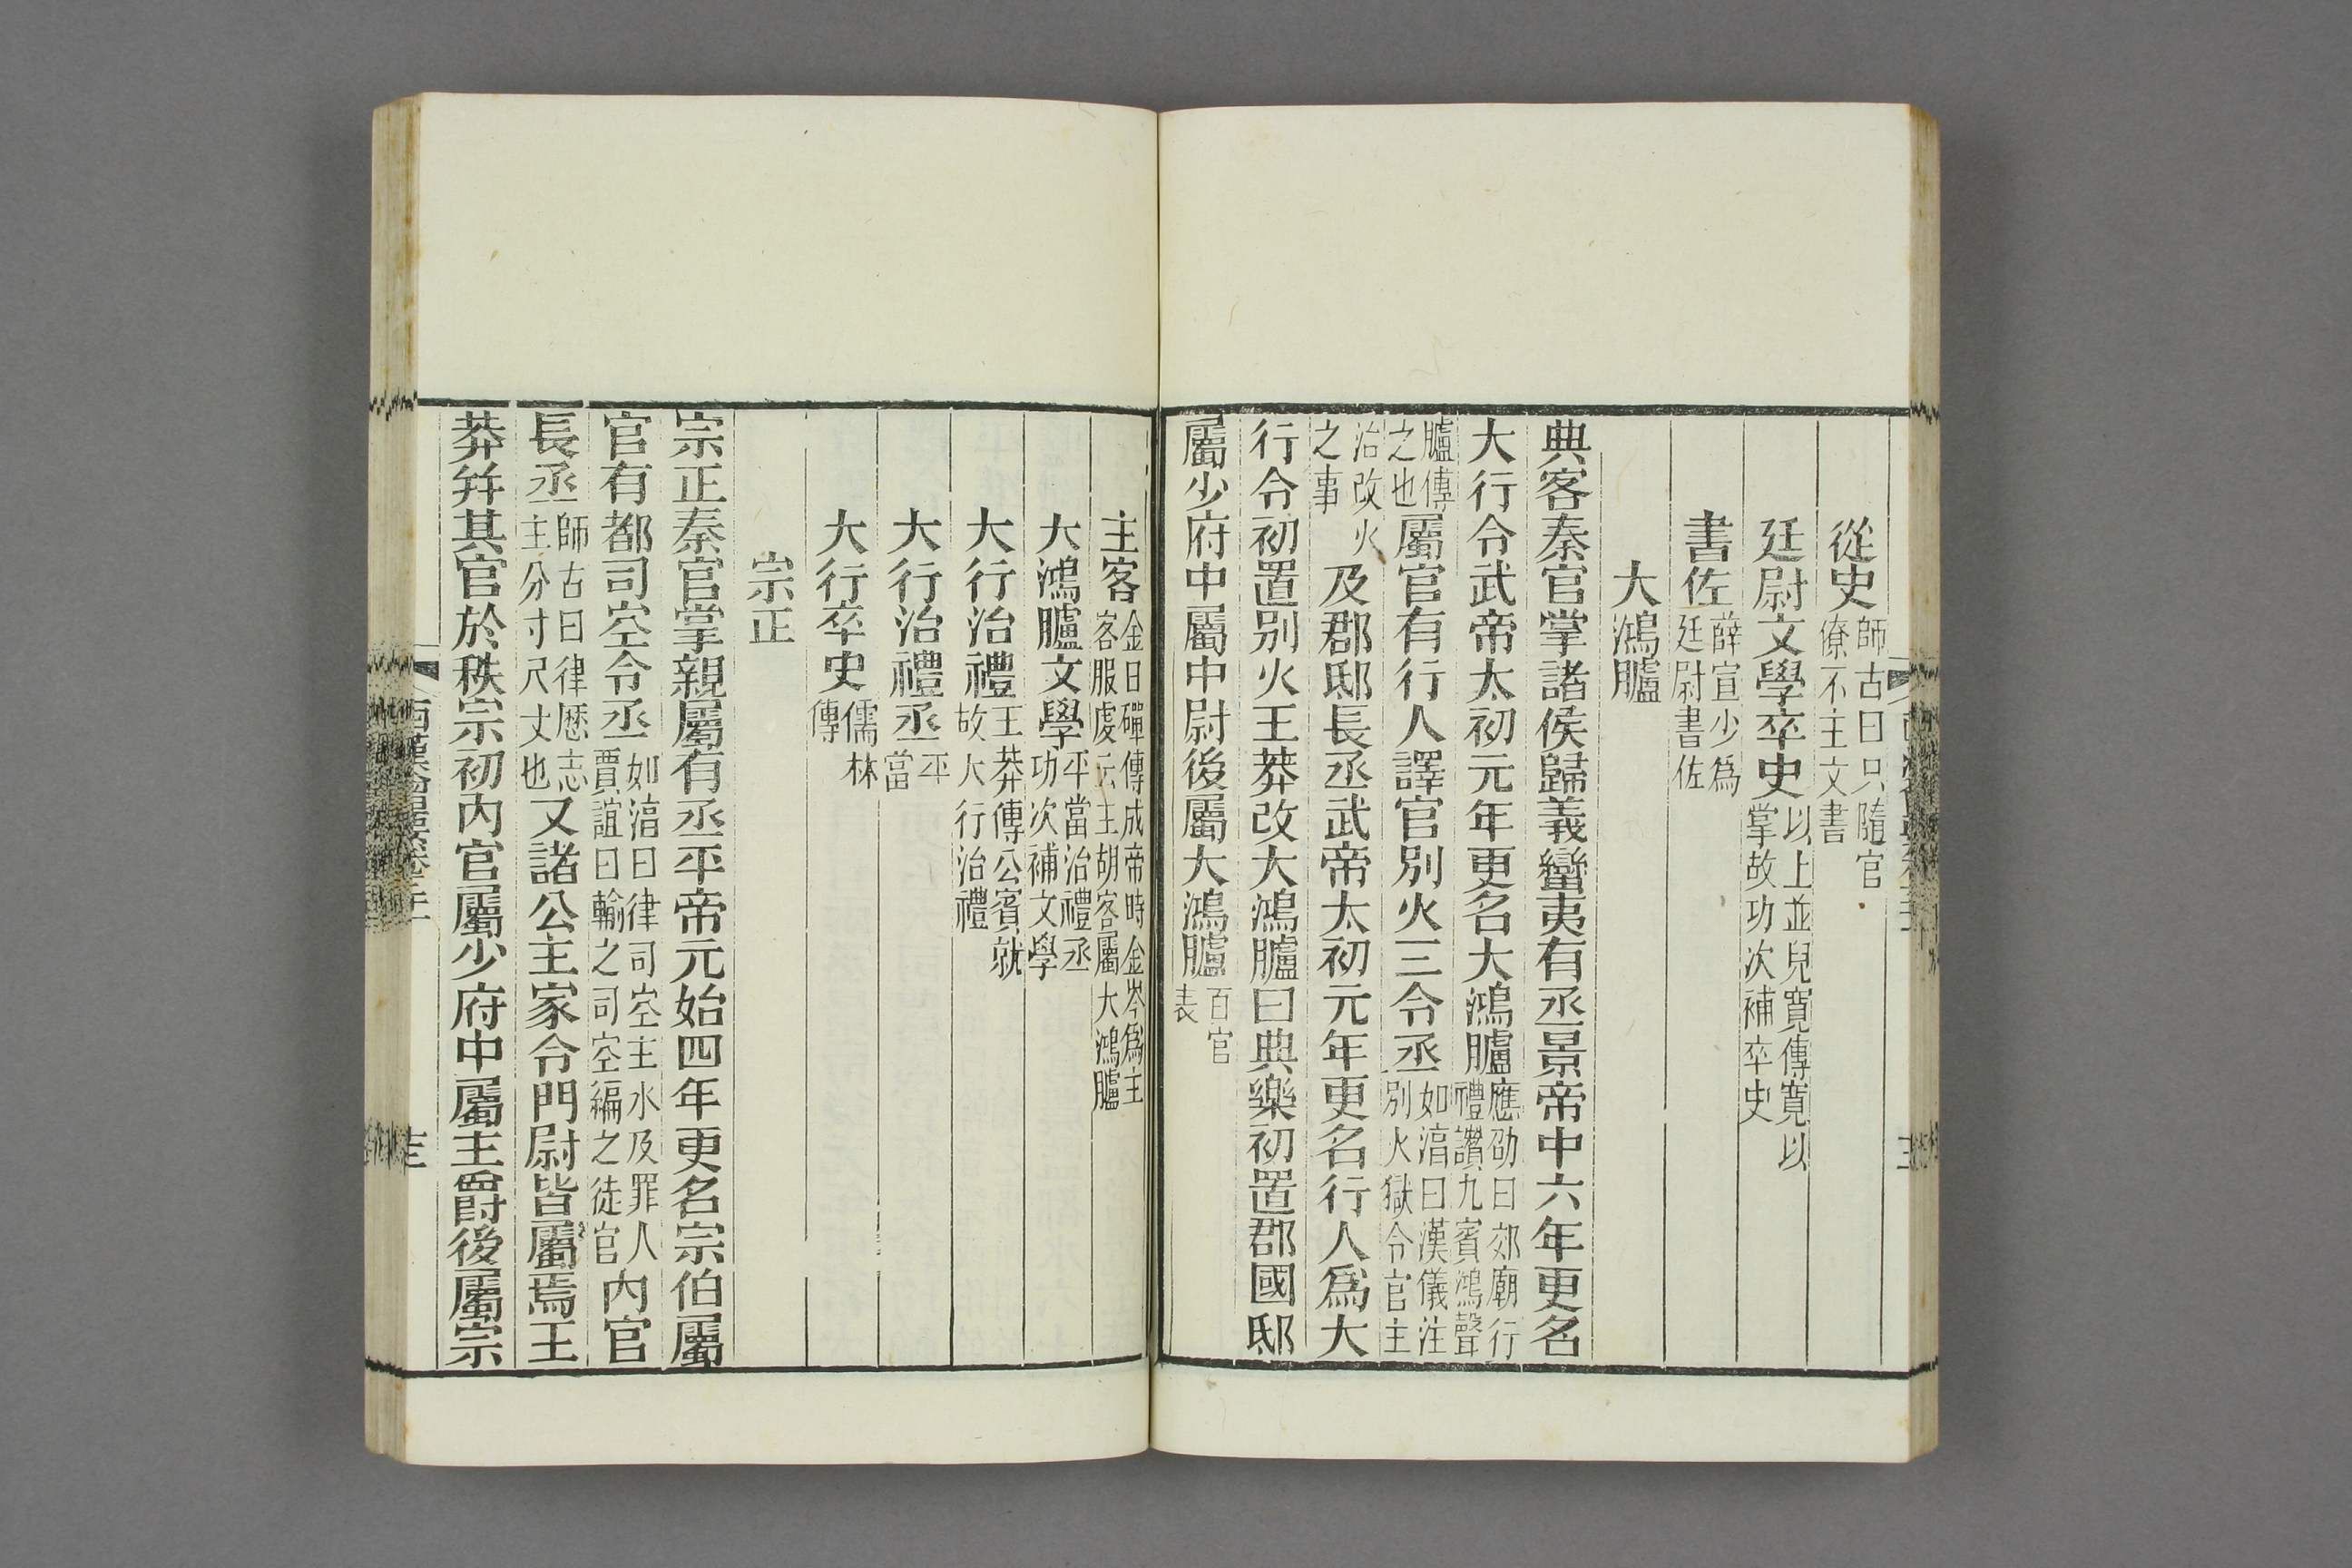 從史師古曰只隨官僚不主文書
廷尉文學卒史以上並兒寬傳寬以掌故功次補卒史
書佐薛宣少為廷尉書佐
大鴻臚
典客秦官掌諸侯歸義蠻夷有丞景帝中六年更名
大行令武帝太初元年更名大鴻臚應劭曰郊廟行禮讚九賓鴻聲
臚傳之也屬官有行人譯官別火三令丞如淳曰漢儀注別火獄令官主
治改火之事及郡邸長丞武帝太初元年更名行人爲大
行令初置別火王莽改大鴻臚曰典樂初置郡國邸
屬少府中屬中尉後屬大鴻臚百官表
主客金日磾傳成帝時金岑爲主客服虔云主胡客屬大鴻臚
大鴻臚文學平當治禮丞功次補文學
大行治禮王莽傳公賓就故大行治禮
大行治禮丞平當
大行卒史儒林傳
宗正
宗正秦官掌親屬有丞平帝元始四年更名宗伯屬
官有都司空令丞如淳曰律司空主水及罪人賈誼曰輸之司空編之徒官內官
長丞師古曰律厯志主分寸尺丈也又諸公主家令門尉皆屬焉王
莽幷其官於秩宗初內官屬少府中屬主爵後屬宗